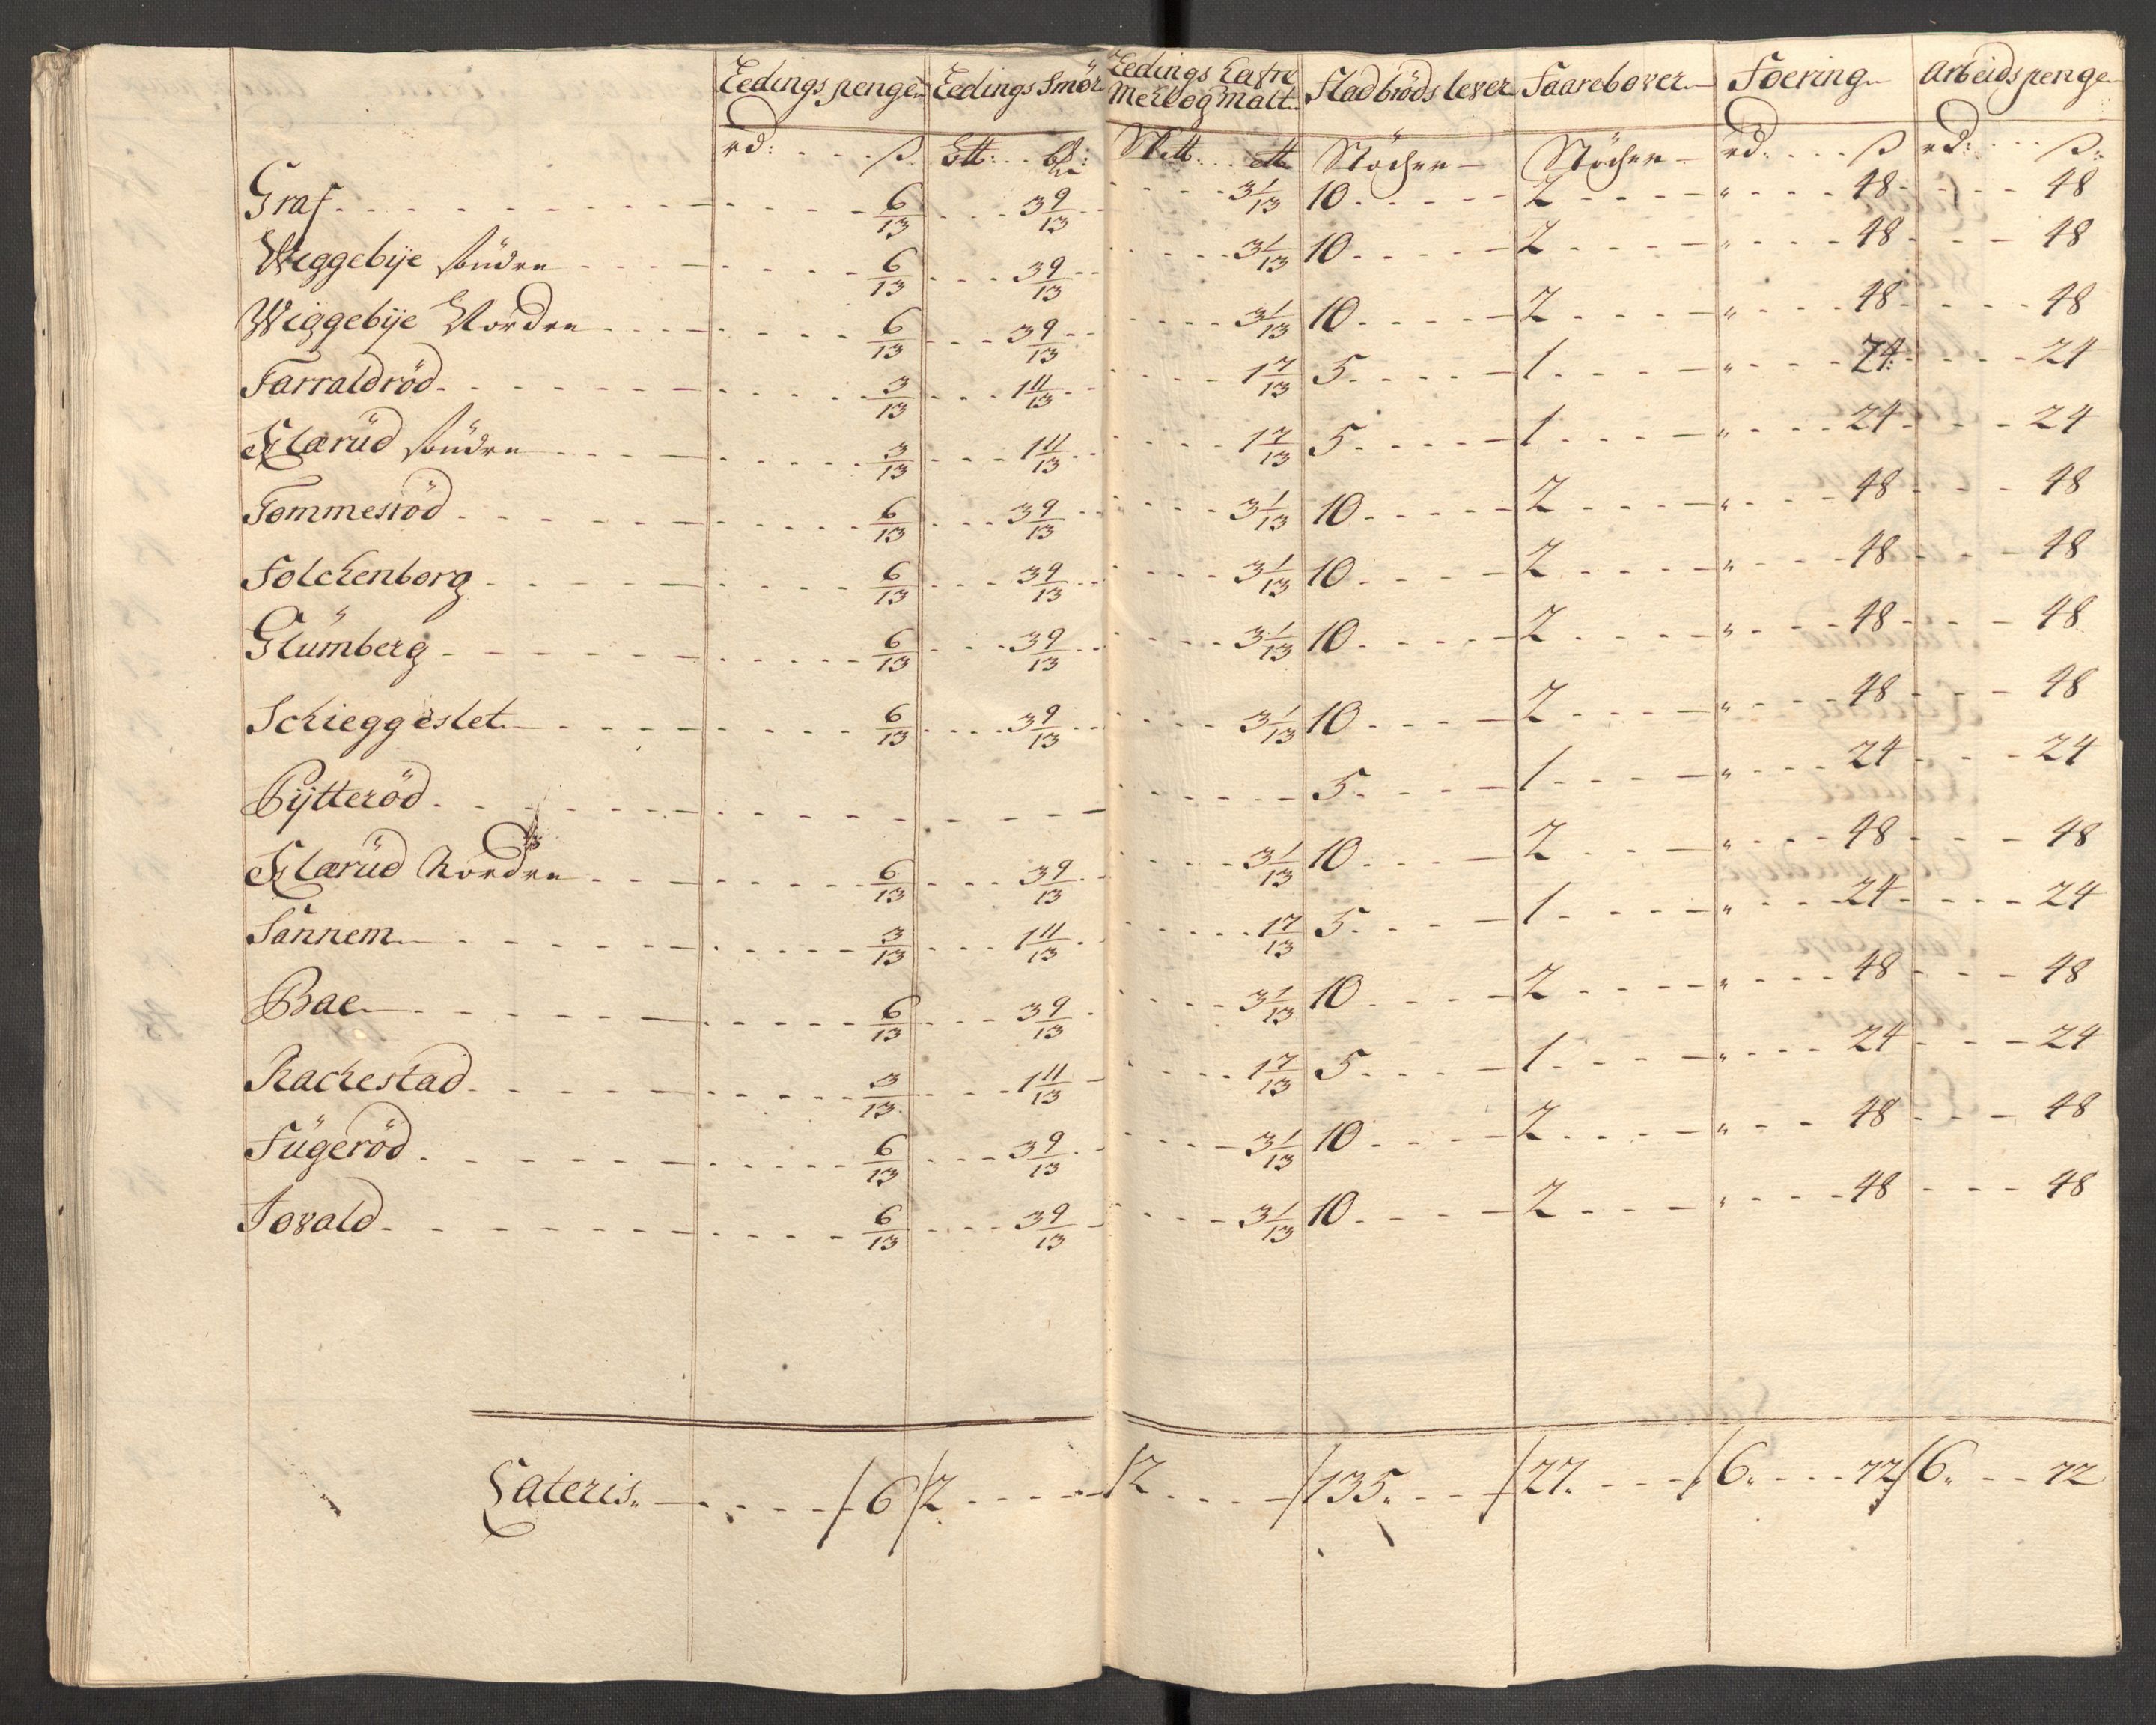 Leedings penge Leedings Smör Leedings Hafre Meel og Malt Fladbrödslever Faarebover Foering Arbeidspenge
rd: ß Stöcher Stöcher rd. ß rd: ß:
Graf 6/13 3 9/13 3 1/13 10 2 " 48 48
Wiggebÿe söndre 6/13 3 9/13 3 1/13 10 2 " 48 48
Wiggebÿe Nordre 6/13 3 9/13 3 1/13 10 2 " 48 48
Farraldröd 3/13 1 11/13 1 7/13 5 1 " 24 24
Klarüd söndre 3/13 1 11/13 1 7/13 5 1 " 24 24
Tommesröd 6/13 3 9/13 3 1/13 10 2 " 48 48
Folckenborg 6/13 3 9/13 3 1/13 10 2 " 48 48
Glümberg 6/13 3 9/13 3 1/13 10 2 " 48 48
Schieggeslet 6/13 3 9/13 3 1/13 10 2 " 48 48
Pÿtteröd 5 1 " 24 24
Klarüd Nordre 6/13 3 9/13 3 1/13 10 2 " 48 48
Sannem 3/13 1 11/13 1 7/13 5 1 " 24 24
Bae 6/13 3 9/13 3 1/13 10 2 " 48 48
Rackestad 3/13 1 11/13 1 7/13 5 1 " 24 24
Fügeröd 6/13 3 9/13 3 1/13 10 2 " 48 48
Iovald 6/13 3 9/13 3 1/13 10 2 " 48 48
Lateris 6 2 2 135 27 6 72 6 72